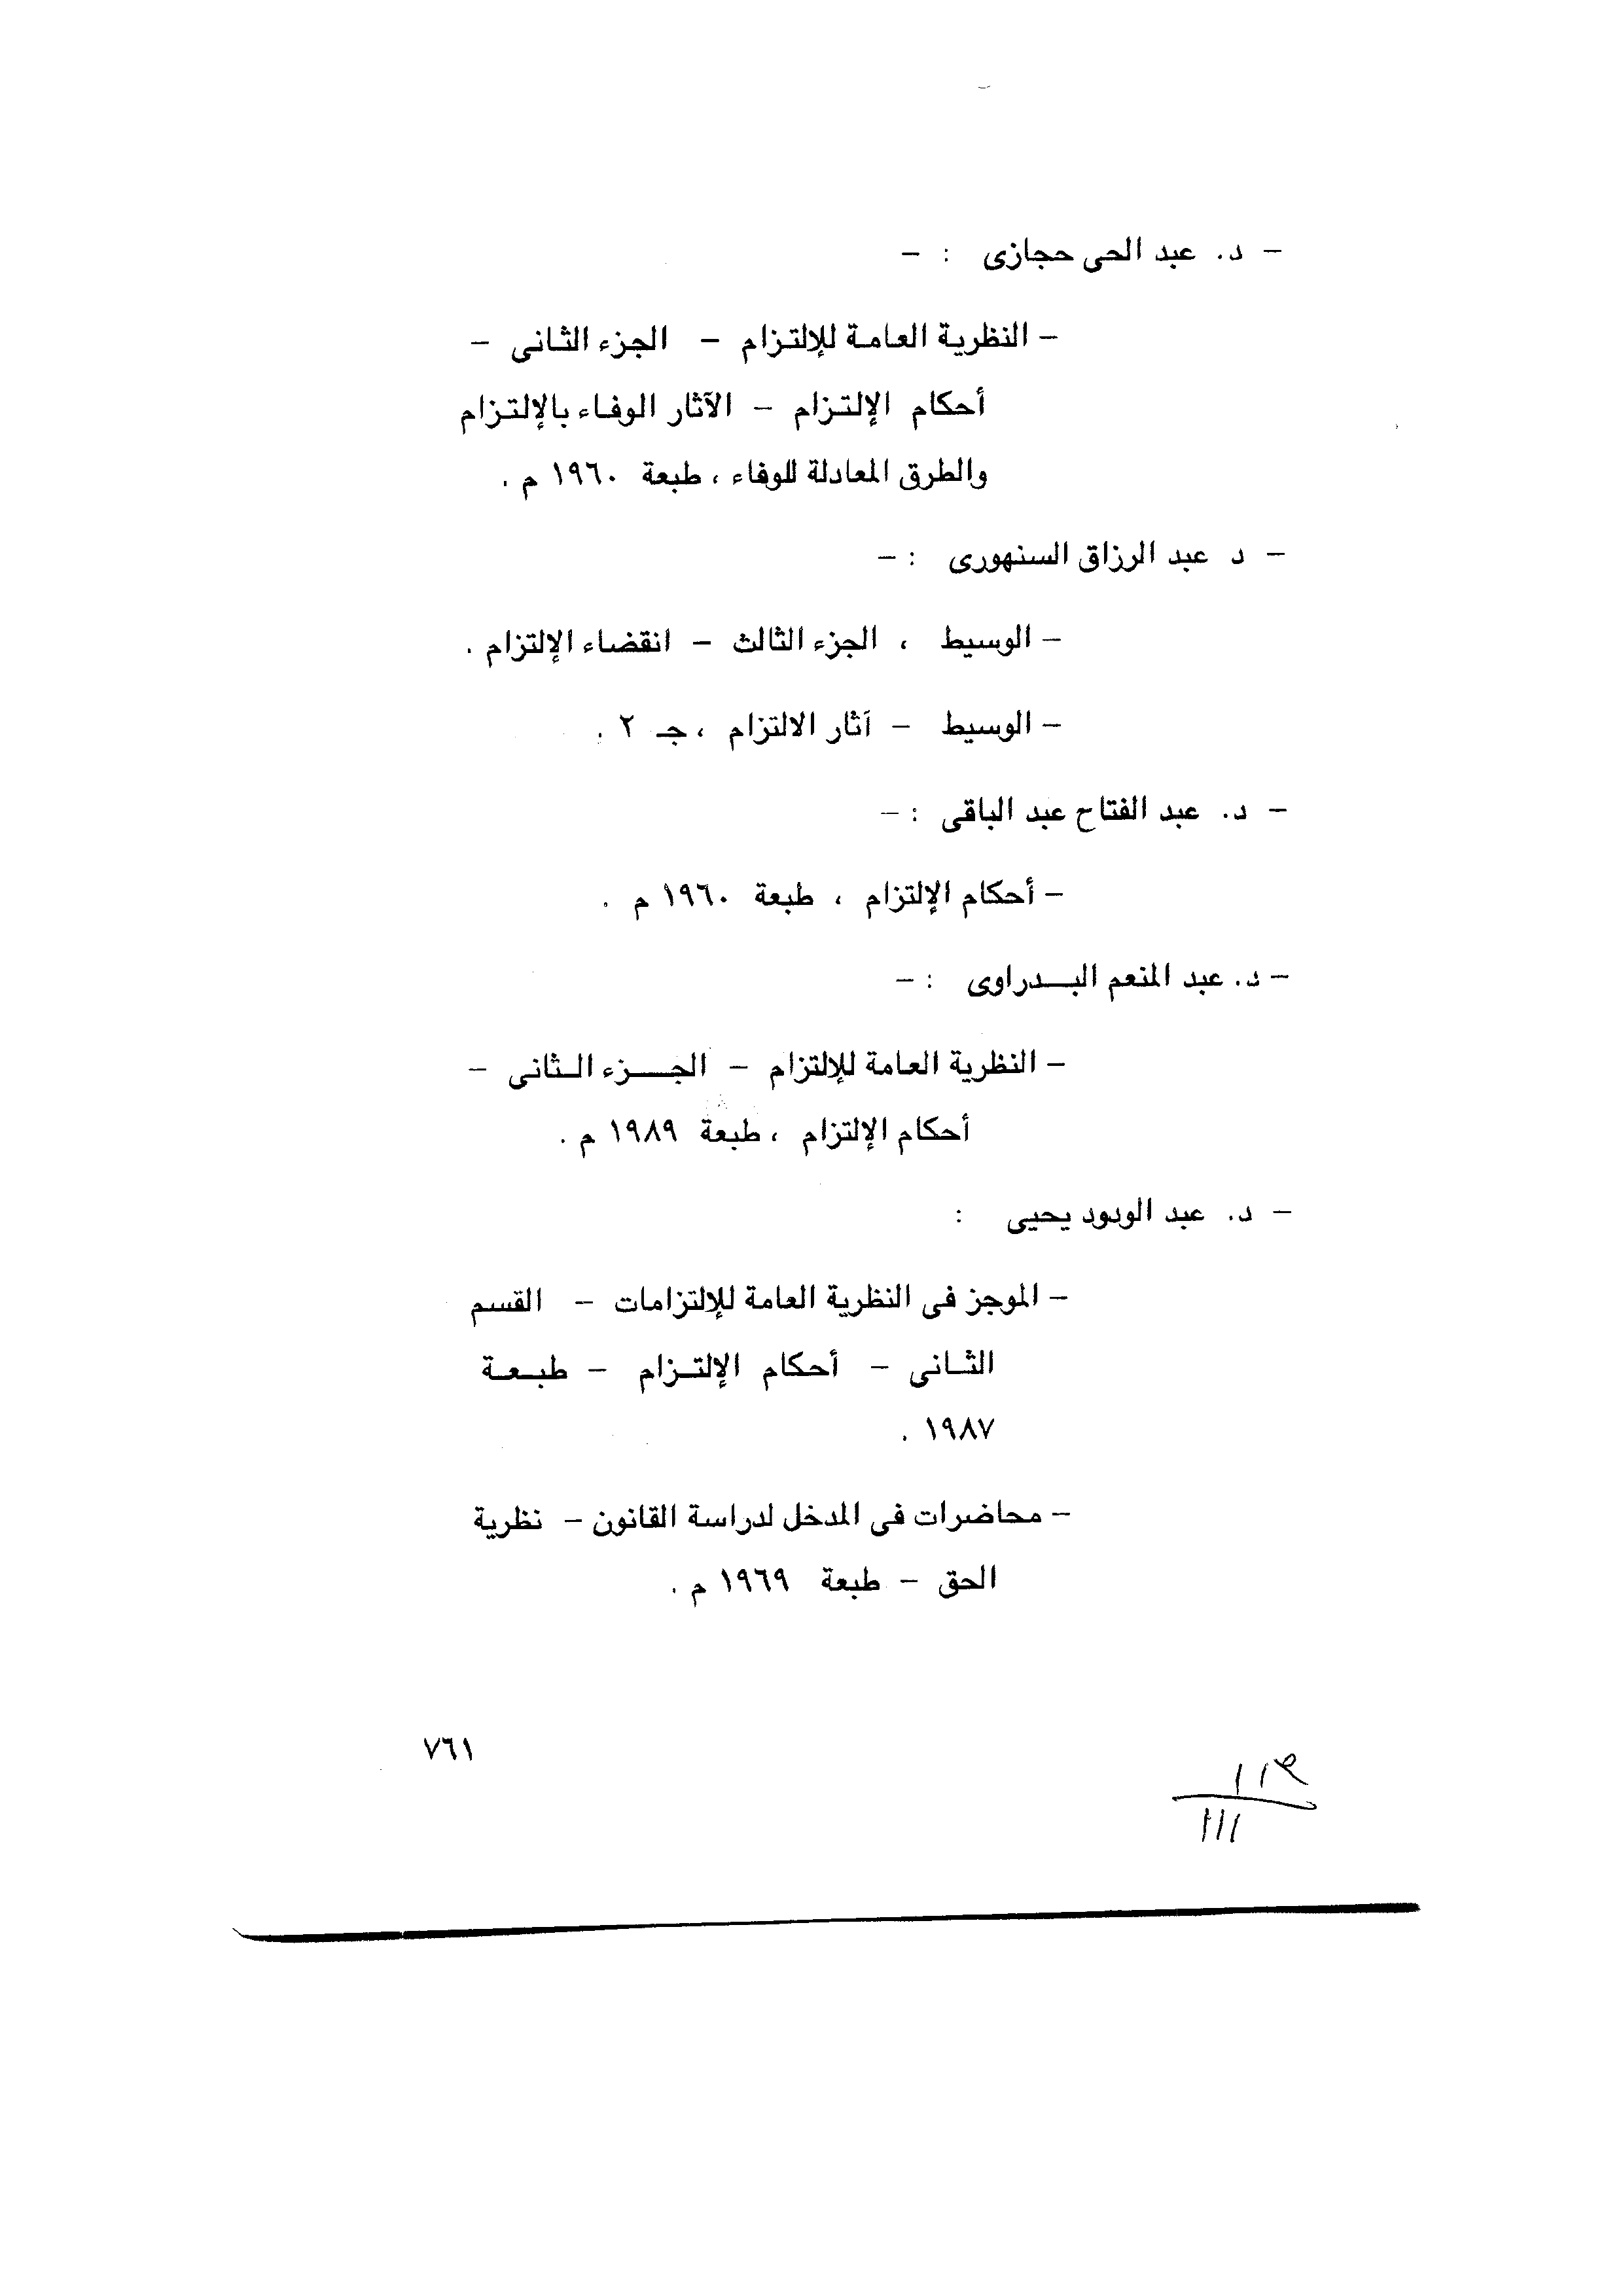 – د. عبد الحى حجازى : –
– النظرية العامة للإلتزام – الجزء الثانى –
أحكام الإلتزام – الآثار الوفاء بالإلتزام
والطرق المعادلة للوفاء ، طبعة ١٩٦٠ م .
– د عبد الرزاق السنهورى : –
– الوسيط ، الجزء الثالث – انقضاء الإلتزام .
– الوسيط – آثار الالتزام ، جـ ٢ .
– د. عبد الفتاح عبد الباقى : –
– أحكام الإلتزام ، طبعة ١٩٦٠ م .
– د. عبد المنعم البـدراوى : –
– النظرية العامة للإلتزام – الجـزء الـثانى –
أحكام الإلتزام ، طبعة ١٩٨٩ م .
– د. عبد الودود يحيى :
– الموجز فى النظرية العامة للإلتزامات – القسم
الثـانى – أحكام الإلتـزام – طبـعـة
١٩٨٧ .
– محاضرات فى المدخل لدراسة القانون – نظرية
الحق – طبعة ١٩٦٩ م .
٧٦١
١١١